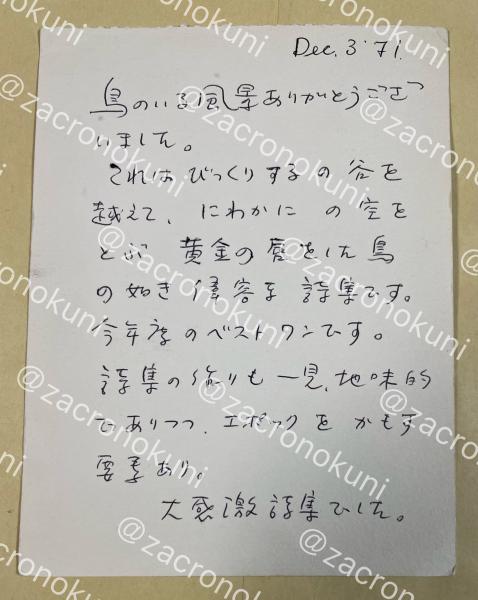 Dec. 3 '71.
鳥のいる風景ありがとうござ
いました。
これは びっくりするの谷を
越えて、にわかに の空を
とぶ 黄金の唇をした鳥
の如き 偉容な 詩集です。
今年度のベストワンです。
詩集の作りも 一見、地味的
でありつつ、エポックを かもす
要素あり。
大感激詩集でした。
@zacronokuni
@zacronokuni
@zacronokuni
@zacronokuni
@zacronokuni
@zacronokuni
@zacronokuni
@zacronokuni